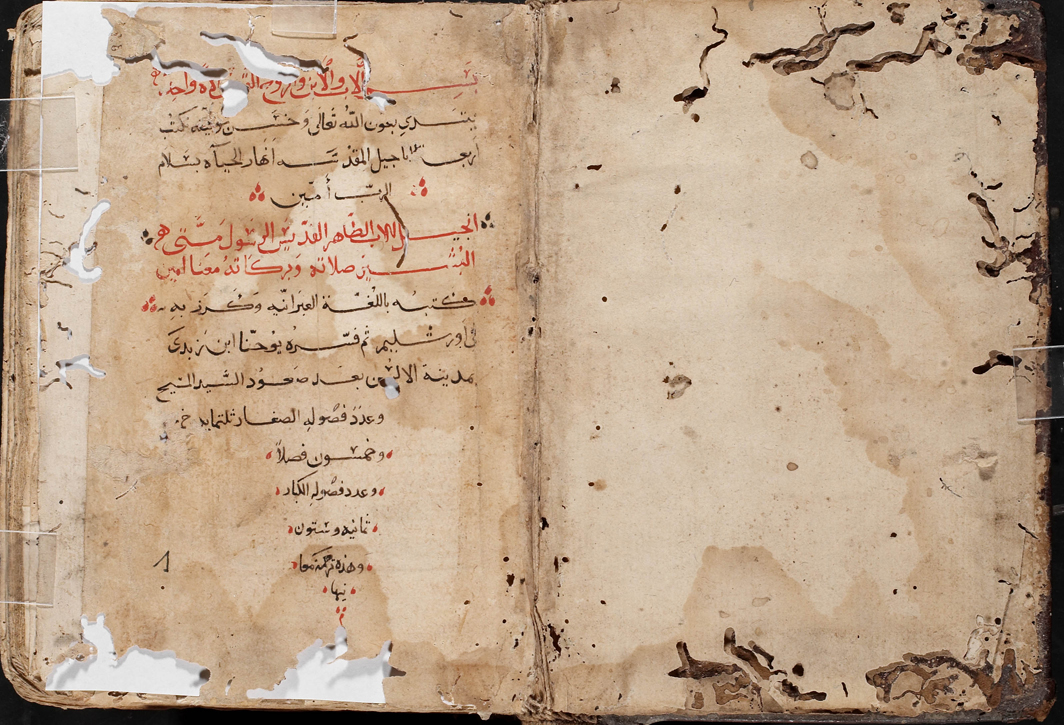 بسم الاب والابن وروح القدس اله واحد
نبتدي بعون الله تعالى وحسن توفيقه نكتب
اربعة اناجيل المقدسه انهار الحياه بسلام
الرب أمين
انجيل الاب الطاهر القديس الرسول متى
البشير صلاته وبركاته معنا امين
كتبه باللغة العبرانيه وكرز به
في اورشليم ثم فسره يوحنا ابن زبدى
بمدينة بعد صعود السيد المسيح
وعدد فصوله الصغار ثلثمايه
وخمسون فصلاً
وعدد فصوله الكبار
ثمانيه وستون
وهذه ترجمة معا
نيها